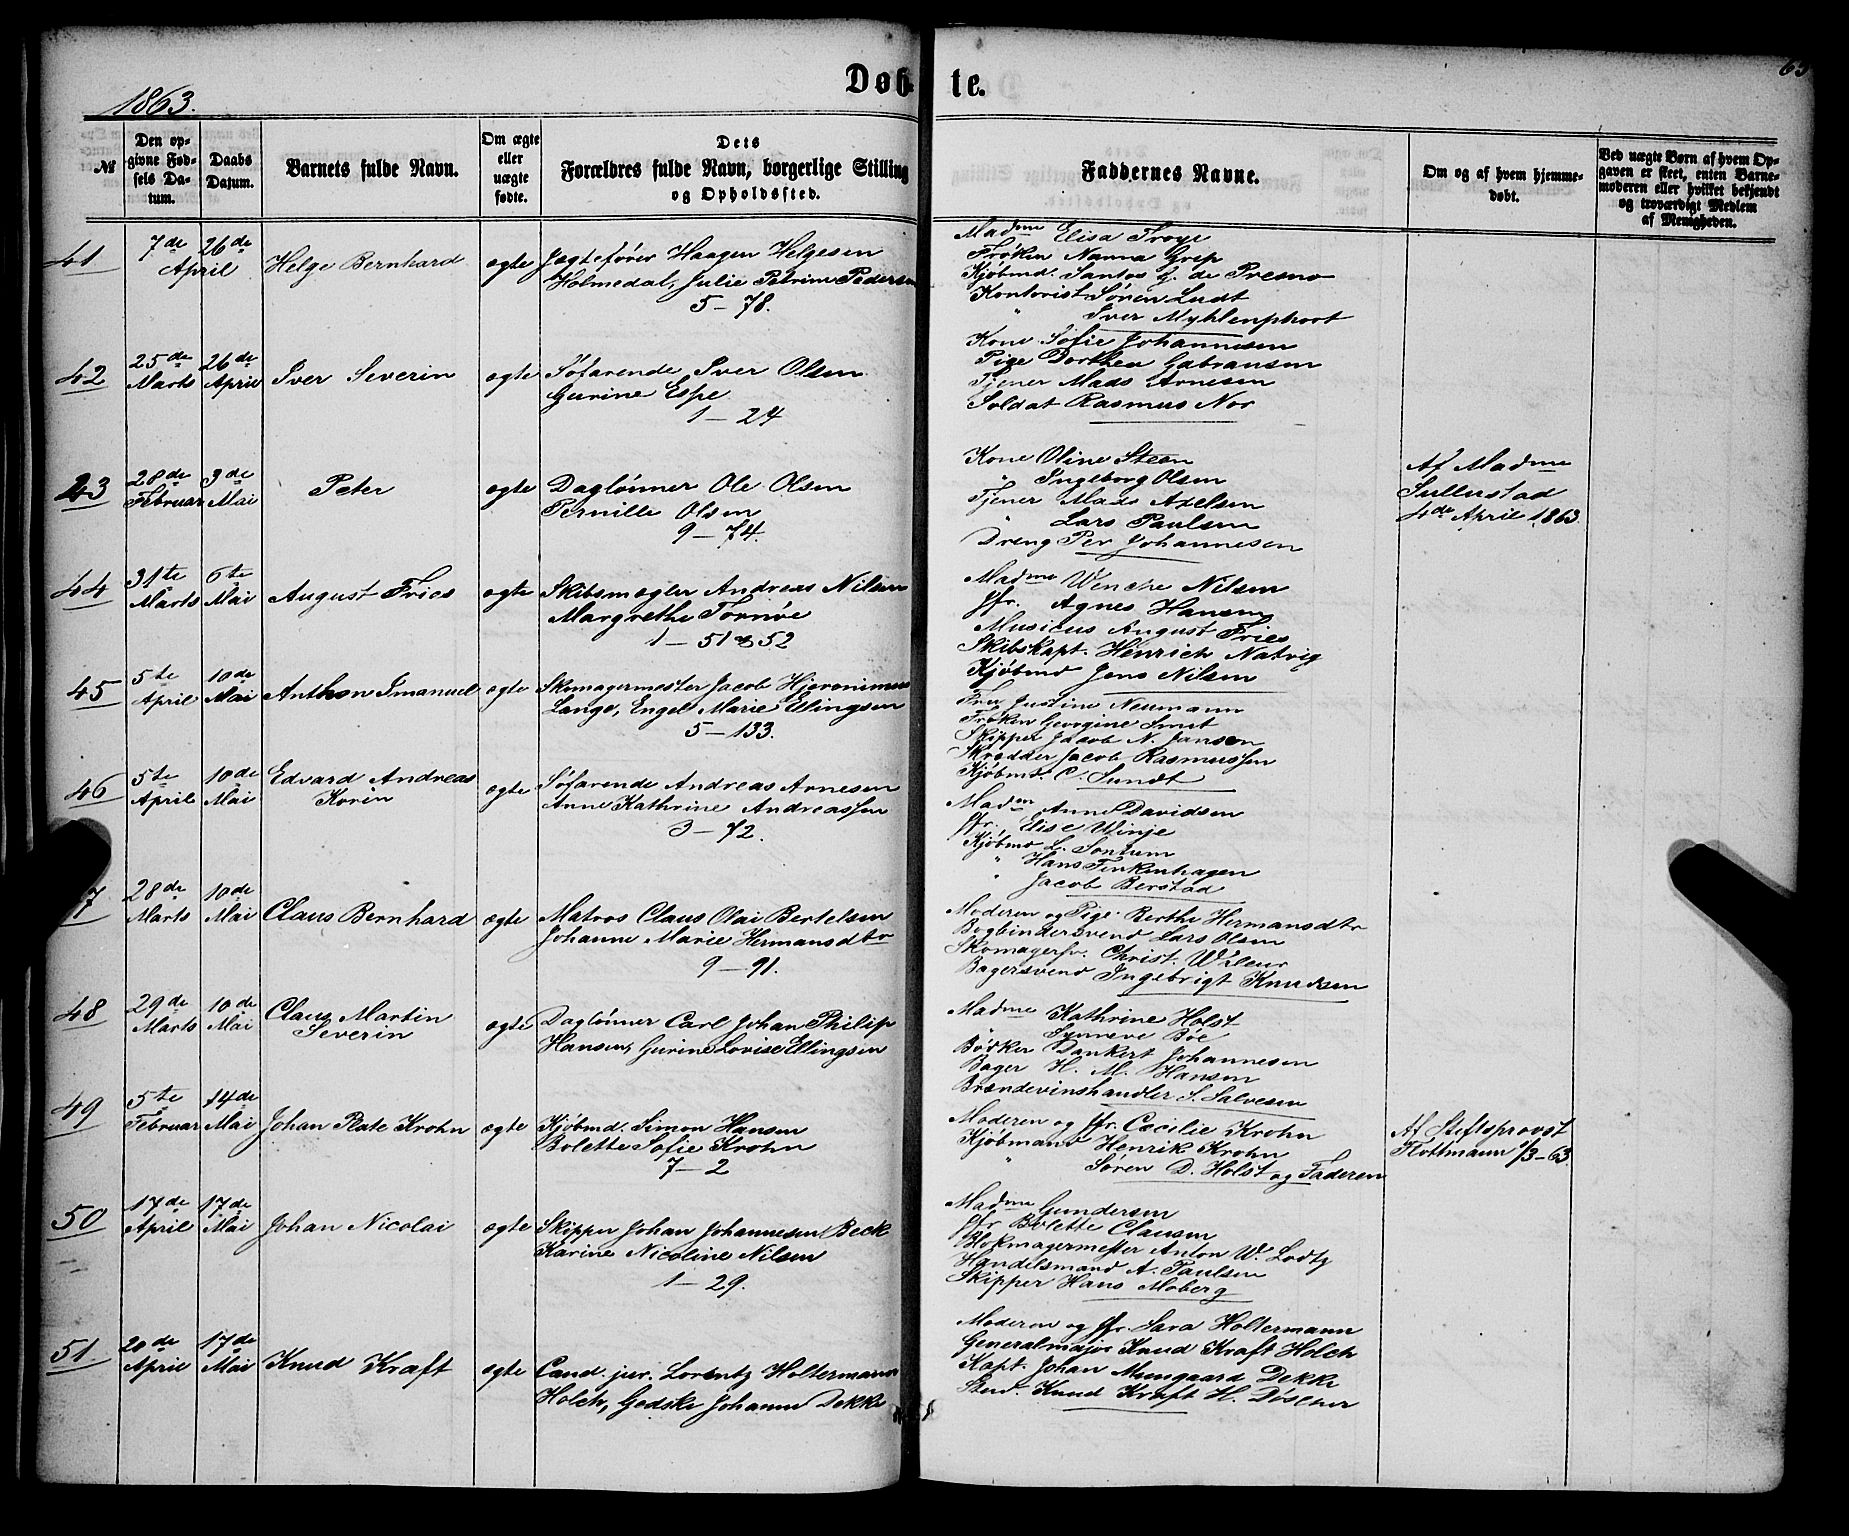 Døb-te.
63
1863.
№
Den opgivne Fødsels Datum.
Daabs Datum.
Barnets fulde Navn.
Om ægte eller uægte fødte.
Dets Forældres fulde Navn, borgerlige Stilling og Opholdssted.
Faddernes Navne.
Om og af hvem hjemmedøbt.
Ved uægte Børn af hvem Opgaven er skeet, enten Barnemoderen eller hvilket bekjendt og troværdigt Medlem af Menigheden.
41
7de April
26de
Helge Bernhard
ægte
Jægtefører Haagen Helgesen
Holmedal, Julie Petrine Pedersen
5-78.
Madme Elisa Troye
Frøken Nanna Grep
Kjøbmd. Santos J. de Presno
Kontorist Søren Ludt
" Iver Myhlenphort
42
25de Marts
26de April
Iver Severin
ægte
Søfarende Iver Olsen
Gurine Espe
1-24
Kone Sofie Johannesen
Pige Dorthea Gabrielsen
Tjener Mads Arnesen
Soldat Rasmus Nor
43
28de Februar
3de Mai
Peter
ægte
Daglønner Ole Olsen
Pernille Olsen
9-74.
Kone Oline Steen
" Ingeborg Olsen
Tjener Mads Axelsen
" Lars Paulsen
Dreng Per Johannesen
Af Madme
Sullestad
4de April 1863.
44
31te Marts
6te Mai
August Fries
ægte
Skibsmægler Andreas Nilsen
Margrethe Tornøe
1-51 & 52
Madme Wenche Nilsen
Jfr. Agnes Hansen
Musicus August Fries
Skibskapt. Henrich Natvig
Kjøbmd Jens Nilsen
45
5te April
10de Mai
Anthon Imanuel
ægte
Skomagermester Jacob Hjeronimus
Lange, Engel Marie Ellingsen
5-133.
Frue Justine Neumann
Frøken Georgine Smit
Skipper Jacob N. Jansen
Skrædder Jacob Rasmussen
Kjøbmd. C. Sundt
46
5te April
10de Mai
Edvard Andreas
Korin
ægte
Søfarende Andreas Arnesen
Anne Kathrine Andreassen
3-72.
Madme Anne Davidsen
Jfr. Elise Winje
Kjøbmd L. Sontum
" Hans Finkenhagen
" Jacob Berstad
47
28de Marts
10de Mai
Claus Bernhard
ægte
Matros Claus Olai Bertelsen
Johanne Marie Hermansdtr
9-91.
Moderen og Pige Berthe Hermansdtr
Bogbindersvend Lars Olsen
Skomagersv. Christ. Wileur
Bagersvend Ingebrigt Knudsen
48
29de Marts
10de Mai
Claus Martin
Severin
ægte
Daglønner Carl Johan Philip
Hansen, Gurine Lovise Ellingsen
Madme Kathrine Holst
" Synneve Bøe
Bødker Dankert Johannesen
Bager H. M. Hansen
Brændevinshandler S. Salvesen
49
5te Februar
14de Mai
Johan Plate Krohn
ægte
Kjøbmd. Simon Hansen
Bolette Sofie Krohn
7-2
Moderen og Jfr. Cecilie Krohn
Kjøbmand Henrik Krohn
" Søren D. Holst og Faderen
Af Stiftsprovst
Flottmann 1/3-63.
50
17de April
17de Mai
Johan Nicolai
ægte
Skipper Johan Johannesen Beck
Karine Nicoline Nilsen
1-29.
Madme Gundersen
Jfr Bolette Clausen
Blokmagermester Anton W. Lodtz
Handelsmand A. Paulsen
Skipper Hans Moberg
51
20de April
17de Mai
Knud Kraft
ægte
Cand. jur. Lorentz Holtermann
Holck, Gedske Johanne Dekke
Moderen og Jfr. Sara Holtermann
Generalmajor Knud Kraft Holck
Kapt. Johan Mungaard Dekke
Stud. Knud Kraft H. Døscher